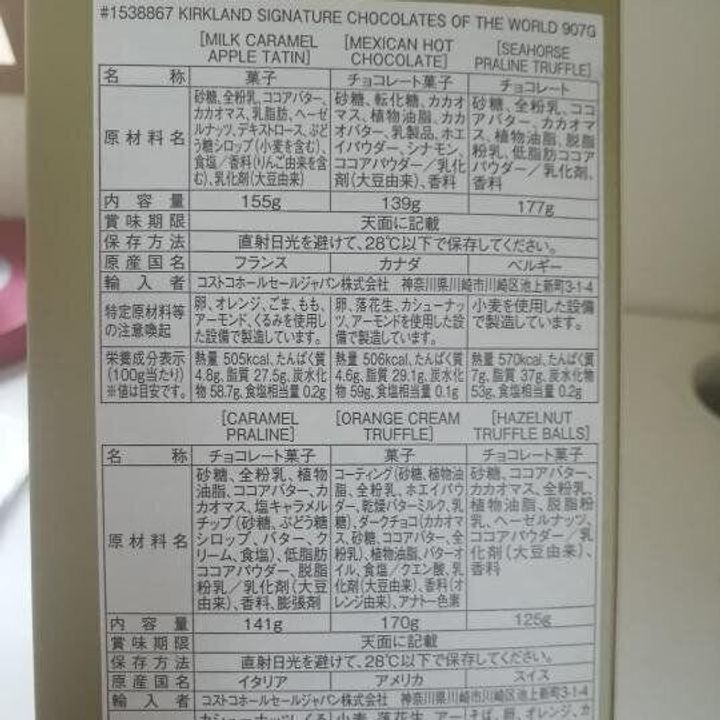 #1538867 KIRKLAND SIGNATURE CHOCOLATES OF THE WORLD 907G
[MILK CARAMEL APPLE TATIN]
[MEXICAN HOT CHOCOLATE]
[SEAHORSE PRALINE TRUFFLE]
名称 菓子 チョコレート菓子 チョコレート
原材料名
砂糖、全粉乳、ココアバター、
カカオマス、乳脂肪、ヘーゼ
ルナッツ、デキストロース、ぶど
う糖シロップ(小麦を含む)、
食塩/香料(りんご由来を含
む)、乳化剤(大豆由来)
砂糖、転化糖、カカオ
マス、植物油脂、カカ
オバター、乳製品、ホエ
イパウダー、シナモン、
ココアパウダー/乳化
剤(大豆由来)、香料
砂糖、全粉乳、ココ
アバター、カカオマ
ス、植物油脂、脱脂
粉乳、低脂肪ココア
パウダー/乳化剤、
香料
内容量 155g 139g 177g
賞味期限 天面に記載
保存方法 直射日光を避けて、28℃以下で保存してください。
原産国名 フランス カナダ ベルギー
輸入者 コストコホールセールジャパン株式会社 神奈川県川崎市川崎区池上新町3-1-4
特定原材料等
の注意喚起
卵、オレンジ、ごま、もも、
アーモンド、くるみを使用し
た設備で製造しています。
卵、落花生、カシューナッ
ツ、アーモンドを使用した設
備で製造しています。
小麦を使用した設備
で製造しています。
栄養成分表示
(100g当たり)
※値は目安です。
熱量 505kcal、たんぱく質
4.8g、脂質 27.5g、炭水化
物 58.7g、食塩相当量 0.2g
熱量 506kcal、たんぱく質
4.6g、脂質 29.1g、炭水化
物 59g、食塩相当量 0.1g
熱量 570kcal、たんぱく質
7g、脂質 37g、炭水化物
53g、食塩相当量 0.2g
[CARAMEL PRALINE]
[ORANGE CREAM TRUFFLE]
[HAZELNUT TRUFFLE BALLS]
名称 チョコレート菓子 菓子 チョコレート菓子
原材料名
砂糖、全粉乳、植物
油脂、ココアバター、カ
カオマス、塩キャラメル
チップ(砂糖、ぶどう糖
シロップ、バター、ク
リーム、食塩)、低脂肪
ココアパウダー、脱脂
粉乳/乳化剤(大豆
由来)、香料、膨張剤
コーティング(砂糖、植物油
脂、全粉乳、ホエイパウ
ダー、乾燥バターミルク、乳
糖)、ダークチョコ(カカオマ
ス、砂糖、ココアバター、全
粉乳)、植物油脂、バターオ
イル、食塩/クエン酸、乳
化剤(大豆由来)、香料(オ
レンジ由来)、アナトー色素
砂糖、ココアバター、
カカオマス、全粉乳、
植物油脂、脱脂粉
乳、ヘーゼルナッツ、
ココアパウダー/乳
化剤(大豆由来)、
香料
内容量 141g 170g 125g
賞味期限 天面に記載
保存方法 直射日光を避けて、28℃以下で保存してください。
原産国名 イタリア アメリカ スイス
輸入者 コストコホールセールジャパン株式会社 神奈川県川崎市川崎区池上新町3-1-4